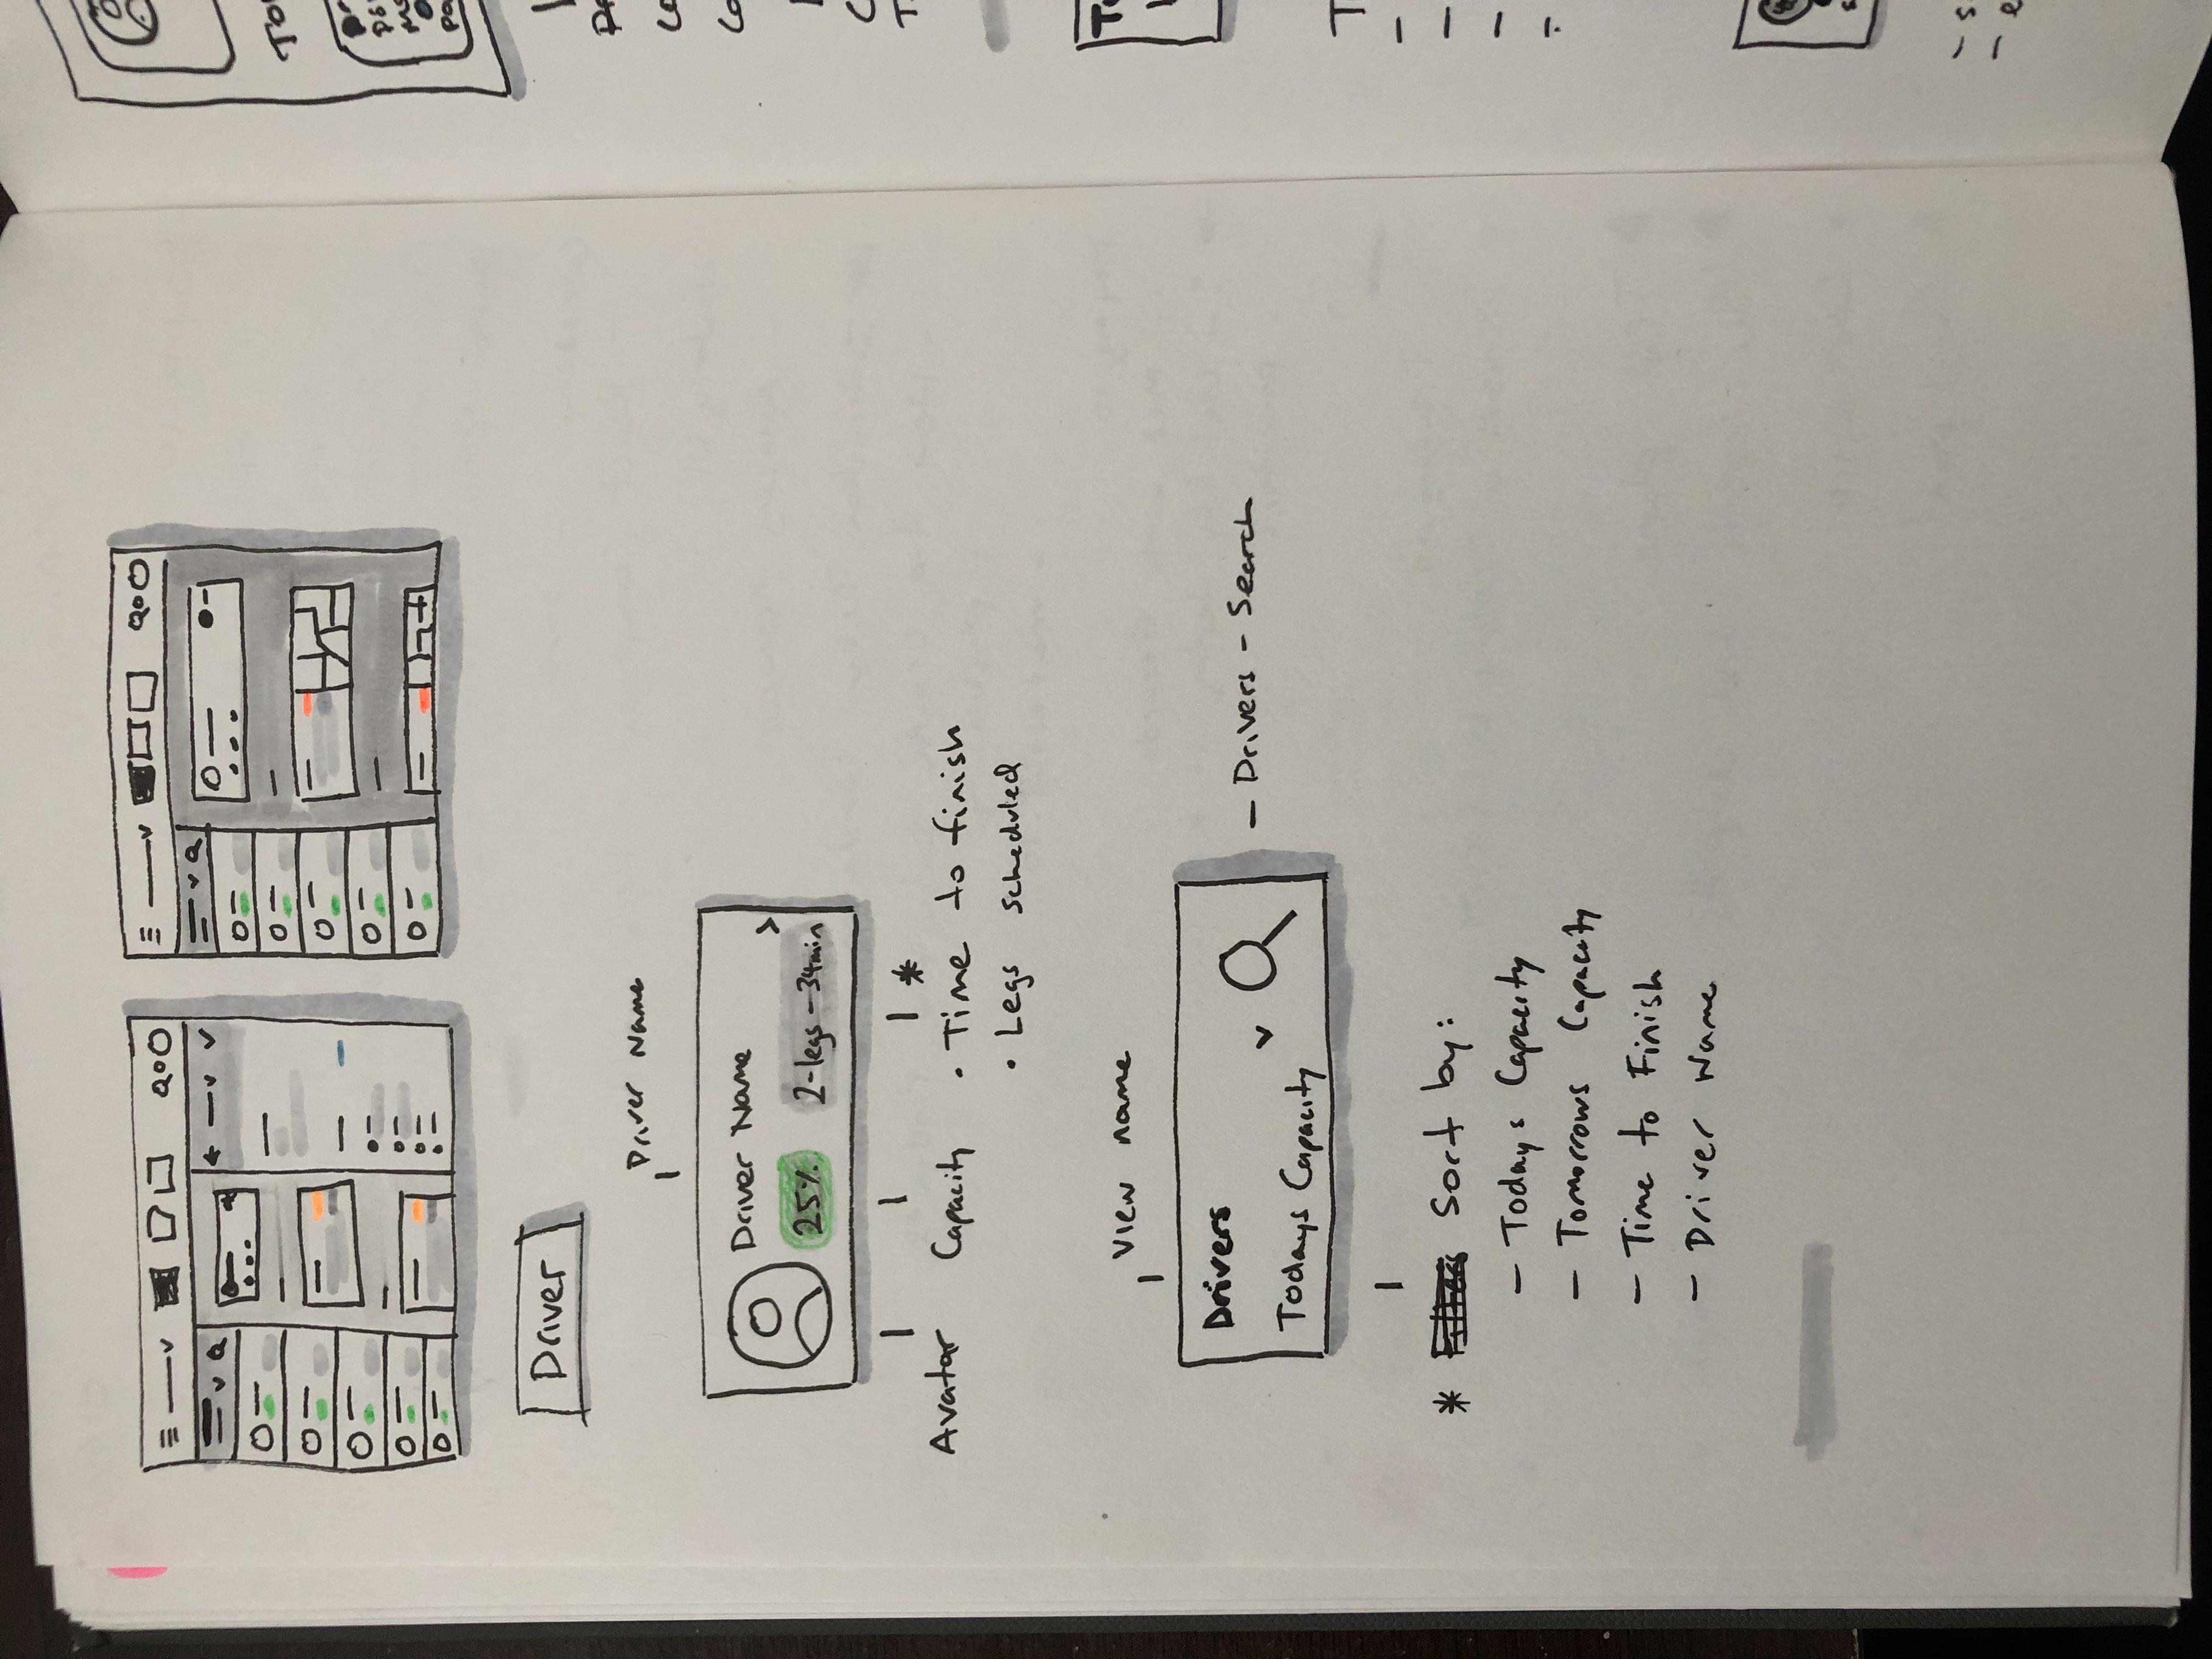 Driver
Driver Name
Driver Name
25%
2-legs-34min
Avatar
Capacity
*
• Time to finish
• Legs scheduled
View name
Drivers
Todays Capacity
– Drivers - Search
* Sort by:
– Todays Capacity
– Tomorrows Capacity
– Time to Finish
– Driver Name